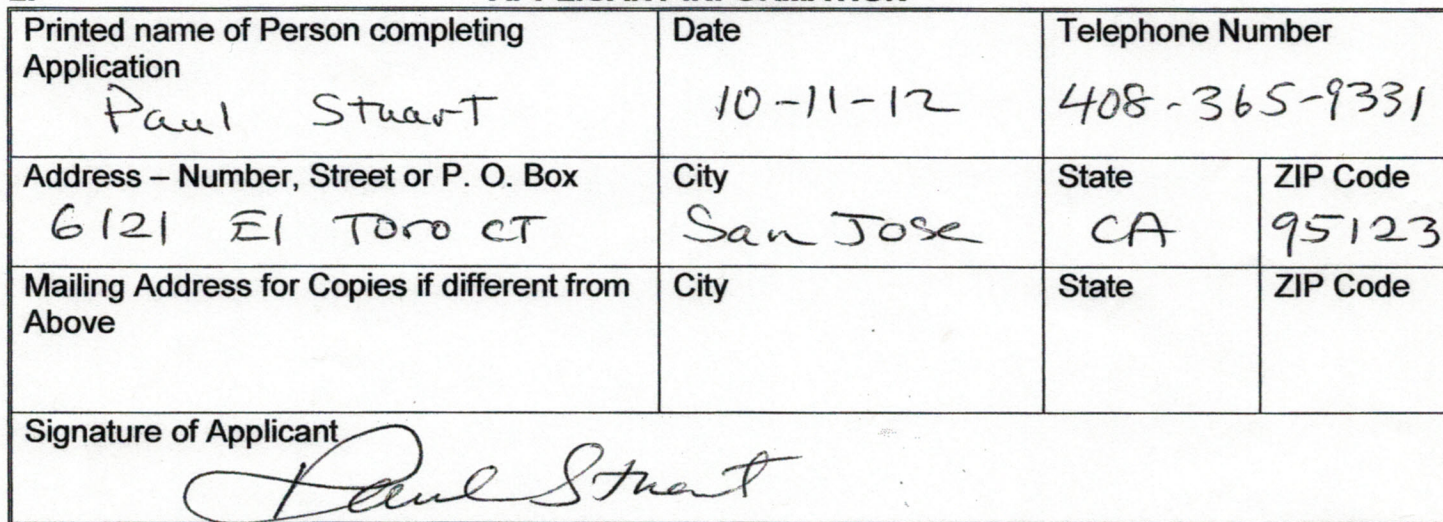 Printed name of Person completing Application
Paul Stuart
Date
10-11-12
Telephone Number
408-365-9331
Address – Number, Street or P. O. Box
6121 El Toro CT
City
San Jose
State
CA
ZIP Code
95123
Mailing Address for Copies if different from Above
City
State
ZIP Code
Signature of Applicant
Paul Stuart